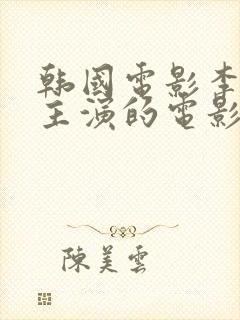 韩國電影李
主演的電影
陳美雲